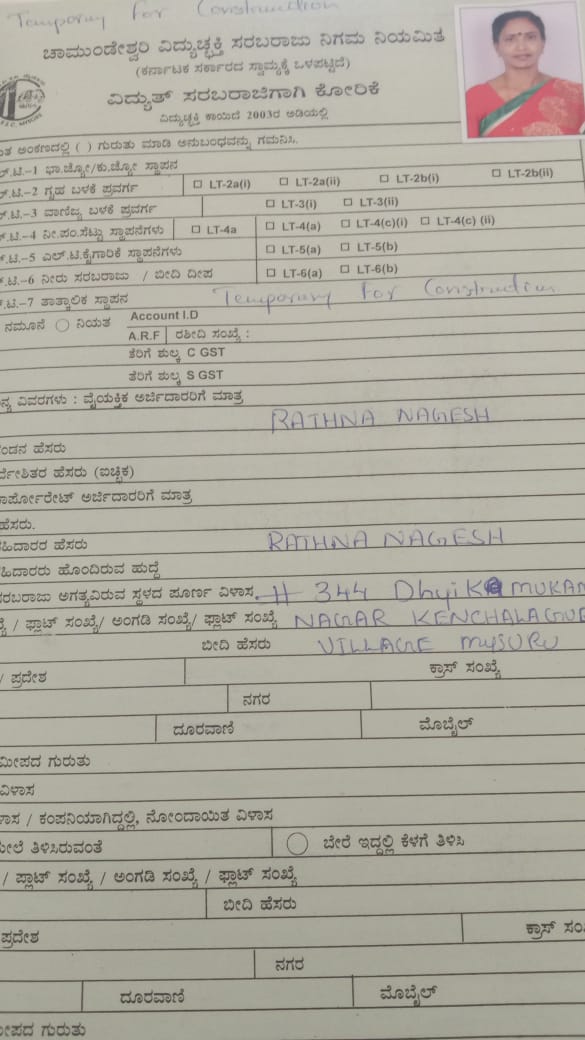 Temporary For Construction
ಚಾಮುಂಡೇಶ್ವರಿ ವಿದ್ಯುಚ್ಛಕ್ತಿ ಸರಬರಾಜು ನಿಗಮ ನಿಯಮಿತ
(ಕರ್ನಾಟಕ ಸರ್ಕಾರದ ಸ್ವಾಮ್ಯಕ್ಕೆ ಒಳಪಟ್ಟಿದೆ)
ವಿದ್ಯುತ್ ಸರಬರಾಜಿಗಾಗಿ ಕೋರಿಕೆ
ವಿದ್ಯುಚ್ಛಕ್ತಿ ಕಾಯಿದೆ 2003ರ ಅಡಿಯಲ್ಲಿ
ಅಂಕಣದಲ್ಲಿ ( ) ಗುರುತು ಮಾಡಿ ಅನುಬಂಧವನ್ನು ಗಮನಿಸಿ.
ಟಿ.–1 ಭಾ.ಜ್ಯೋ/ಕು.ಜ್ಯೋ ಸ್ಥಾಪನ
ಟಿ.–2 ಗೃಹ ಬಳಕೆ ಪ್ರವರ್ಗ ☐ LT-2a(i) ☐ LT-2a(ii) ☐ LT-2b(i) ☐ LT-2b(ii)
ಟಿ.–3 ವಾಣಿಜ್ಯ ಬಳಕೆ ಪ್ರವರ್ಗ ☐ LT-3(i) ☐ LT-3(ii)
ಟಿ.–4 ನೀ.ಪಂ.ಸೆಟ್ಟು ಸ್ಥಾಪನೆಗಳು ☐ LT-4a ☐ LT-4(a) ☐ LT-4(c)(i) ☐ LT-4(c) (ii)
ಟಿ.–5 ಎಲ್.ಟಿ.ಕೈಗಾರಿಕೆ ಸ್ಥಾಪನೆಗಳು ☐ LT-5(a) ☐ LT-5(b)
ಟಿ.–6 ನೀರು ಸರಬರಾಜು / ಬೀದಿ ದೀಪ ☐ LT-6(a) ☐ LT-6(b)
ಟಿ.–7 ತಾತ್ಕಾಲಿಕ ಸ್ಥಾಪನ Temporary For Construction
ನಮೂನೆ ◯ ನಿಯತ Account I.D
A.R.F ರಶೀದಿ ಸಂಖ್ಯೆ :
ತೆರಿಗೆ ಶುಲ್ಕ C GST
ತೆರಿಗೆ ಶುಲ್ಕ S GST
ವಿವರಗಳು : ವೈಯಕ್ತಿಕ ಅರ್ಜಿದಾರರಿಗೆ ಮಾತ್ರ
RATHNA NAGESH
ಹೆಸರು
ಹೆಸರು (ಐಚ್ಛಿಕ)
ಅರ್ಜಿದಾರರಿಗೆ ಮಾತ್ರ
ಹೆಸರು.
ಹೆಸರು RATHNA NAGESH
ಹೊಂದಿರುವ ಹುದ್ದೆ
ಅಗತ್ಯವಿರುವ ಸ್ಥಳದ ಪೂರ್ಣ ವಿಳಾಸ. # 344
/ ಫ್ಲಾಟ್ ಸಂಖ್ಯೆ/ ಅಂಗಡಿ ಸಂಖ್ಯೆ/ ಫ್ಲಾಟ್ ಸಂಖ್ಯೆ NAGAR
ಬೀದಿ ಹೆಸರು VILLAGE MYSURU
/ ಪ್ರದೇಶ ಕ್ರಾಸ್ ಸಂಖ್ಯೆ
ನಗರ
ದೂರವಾಣಿ ಮೊಬೈಲ್
ಗುರುತು
ವಿಳಾಸ
/ ಕಂಪನಿಯಾಗಿದ್ದಲ್ಲಿ, ನೋಂದಾಯಿತ ವಿಳಾಸ
ತಿಳಿಸಿರುವಂತೆ ◯ ಬೇರೆ ಇದ್ದಲ್ಲಿ ಕೆಳಗೆ ತಿಳಿಸಿ
/ ಪ್ಲಾಟ್ ಸಂಖ್ಯೆ / ಅಂಗಡಿ ಸಂಖ್ಯೆ / ಫ್ಲಾಟ್ ಸಂಖ್ಯೆ
ಬೀದಿ ಹೆಸರು
ಪ್ರದೇಶ ಕ್ರಾಸ್
ನಗರ
ದೂರವಾಣಿ ಮೊಬೈಲ್
ಗುರುತು